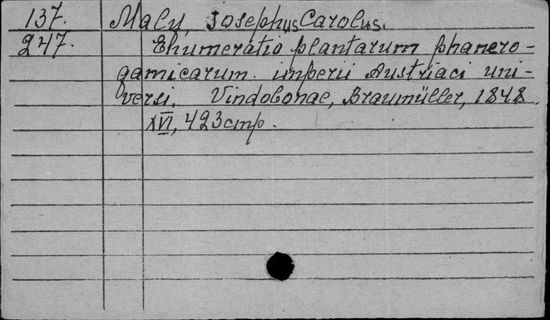 137. Maly, Josephus Carolus.
247. Enumeratio plantarum phanero-
gamicarum imperii Austriaci uni-
versi. Vindobonae, Braumüller, 1848.
XVI, 423 стр.